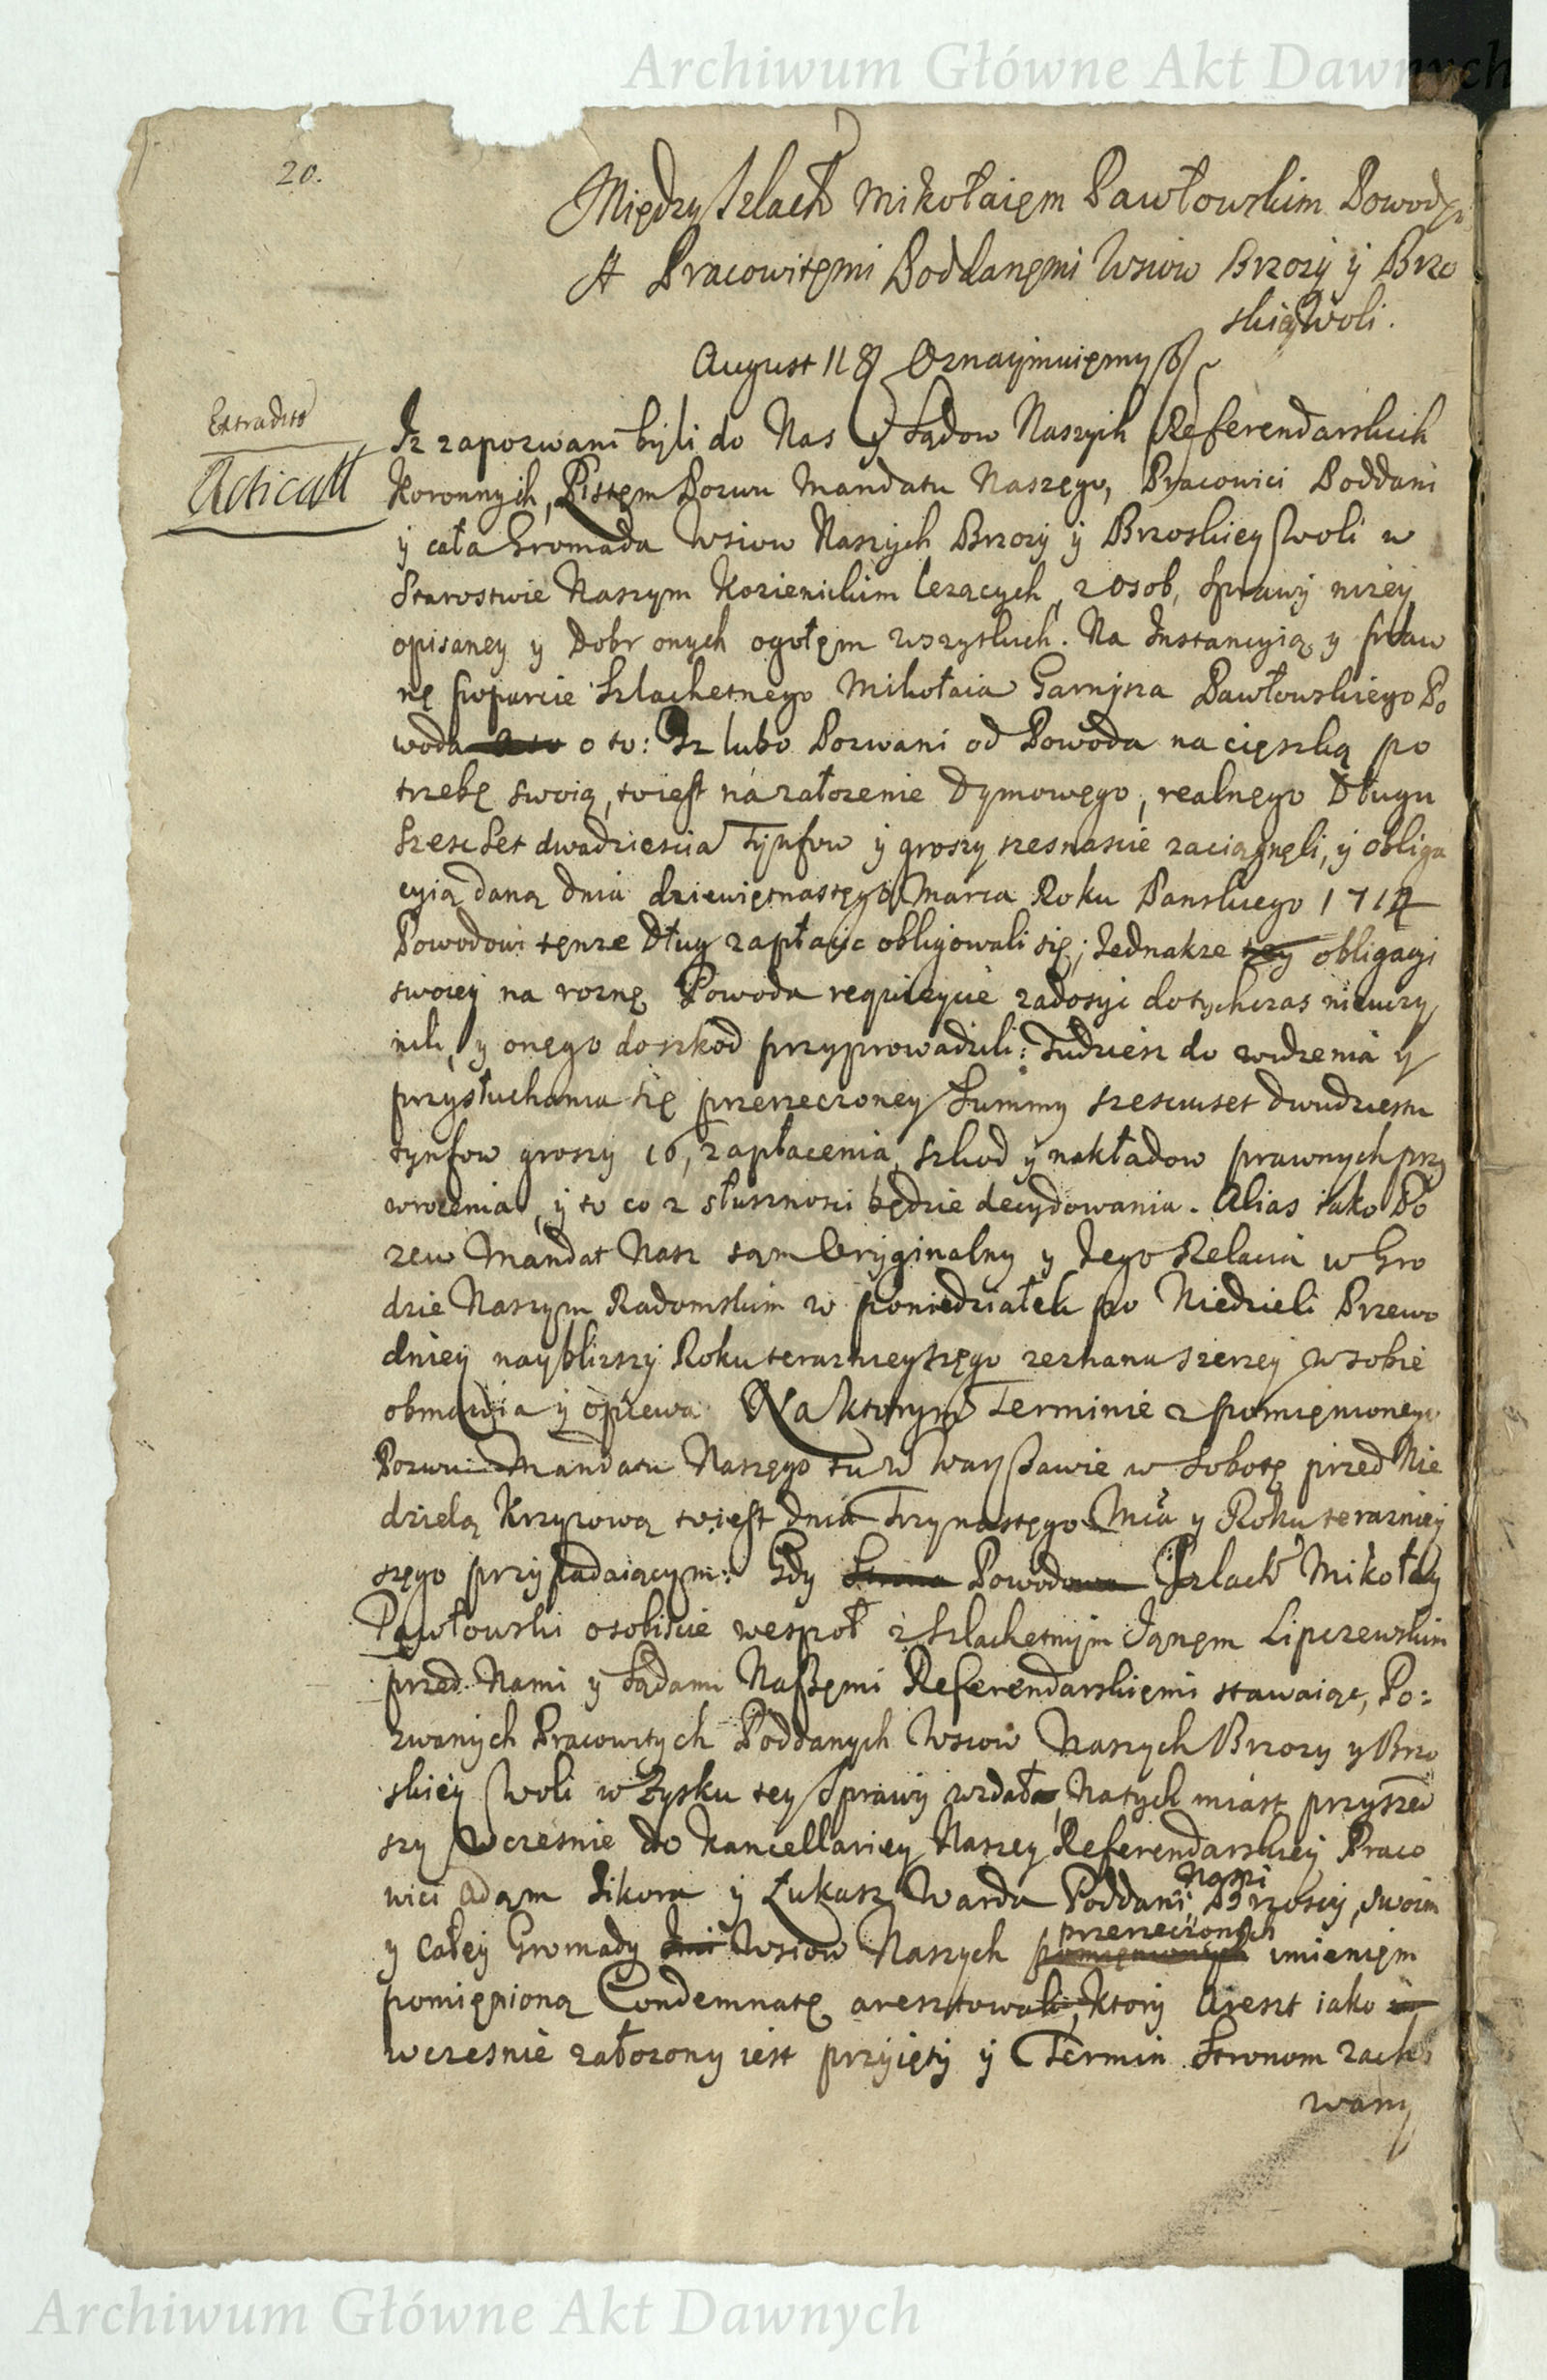 Archiwum Główne Akt Dawnych
20.
Między Szlach Mikołaięm Pawłowskim Powodę
A Pracowitęmi Poddanęmi Wsiow Brzozy y Brzo
skiey Woli.
August II Oznaymuięmy
Extradit
Acticatt
Iz zapozwani byli do Nas y Sądow Naszych Referendarskich
Koronnych, Pistęm Pozwu Mandatu Naszęgo, Pracowici Poddani
y cała Gromada Wsiow Naszych Brzozy y Brzoskiey Woli w
Starostwie Naszym Kozienickim lezących, z Osob, sprawy nizey
opisaney y Dobr onych ogołęm wszytkich. Na Instancyią y praw
nę poparcie Szlachetnego Mikołaia Garnysza Pawłowskiego Po
woda o to: Iz lubo Pozwani od Powoda na cięszką po
trzebę swoią, toiest na załozenie Dymowęgo, realnęgo Długu
Szesc Set dwadziescia Tynfow y groszy szesnascie zaciągnęli, y obliga
cyią daną dnia dziewiętnastęgo Marca Roku Panskiego 1714
Powodowi tęnze Dług zapłacic obligowali się; Jednakze tey obligacyi
swoiey na roznę Powoda requizycie zadosyc dotychczas nieuczy
nili, y onęgo do szkod przyprowadzili: Tudziesz do widzenia y
przysłuchania się przerzeczoney Summy szesciuset dwudziestu
tynfow groszy 16, zapłacenia, szkod y nakładow prawnych przy
wrocenia, y to co z słusznosci będzie decydowania. Alias iako Po
zew Mandat Nasz sąm Oryginalny y Jego Relacia w Gro
dzie Naszym Radomskim w poniedziałek po Niedzieli Przewo
dniey naybliszy Roku teraznieyszęgo zeznana szerzey w sobie
obmawia y opiewa. Na ktorym Terminie z pomięnionego
Pozwu Mandatu Naszęgo tu w Warszawie w Sobotę przed Nie
dzielą Krzyzową toiest dnia Trzynastęgo Mca y Roku terazniey
szęgo przypadaiącym: Gdy Strona Powodowa Szlach Mikołay
Pawłowski osobiscie wespoł z Szlachetnym Janęm Lipczewskim
przed Nami y Sądami Naszęmi Referendarskięmi stawaiąc, Po:
zwanych Pracowitych Poddanych Wsiow Naszych Brzozy y Brzo
skiey Woli w Zysku tey Sprawy wzdała, Natych miast przyszed
szy Wczesnie do Kancellariey Naszey Referendarskiey Praco
wici Adąm Sikora y Łukasz Warda Poddani Naszi Brzoscy, swoim
y całey Gromady Wsiow Naszych przerzeczonych imienięm
pomięnioną Condemnatę aresztowali, ktory Areszt iako
wczesnie załozony iest przyięty y Termin Stronom zacho
wany
Archiwum Główne Akt Dawnych